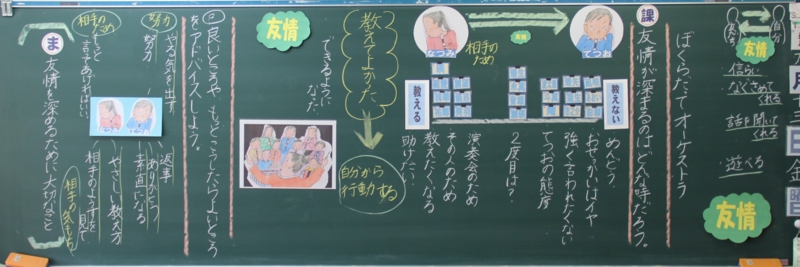 自分
友情
友だち
信らい
なぐさめて
くれる
話を聞いて
くれる
遊べる
友情
ぼくらだってオーケストラ
課
友情が深まるのはどんな時だろう。
てつお
なつみ
友情
相手の
ため
教えない
教える
めんどう
おせっかいはイヤ
強く言われたくない
てつおの態度
2度目は?
演奏会のため
その人のため
教えたくなる
助けたい
教えてよかった
自分から
行動する
できるように
なった
友情
◎良いところや もっとこうしたらよいところ
をアドバイスしよう。
努力 やる気を出す
努力
相手のため
もっと
言ってあげればよい
返事
ありがとう
素直になる
やさしい教え方
相手のようすを見て
相手の気もち
ま
友情を深めるために大切なこと